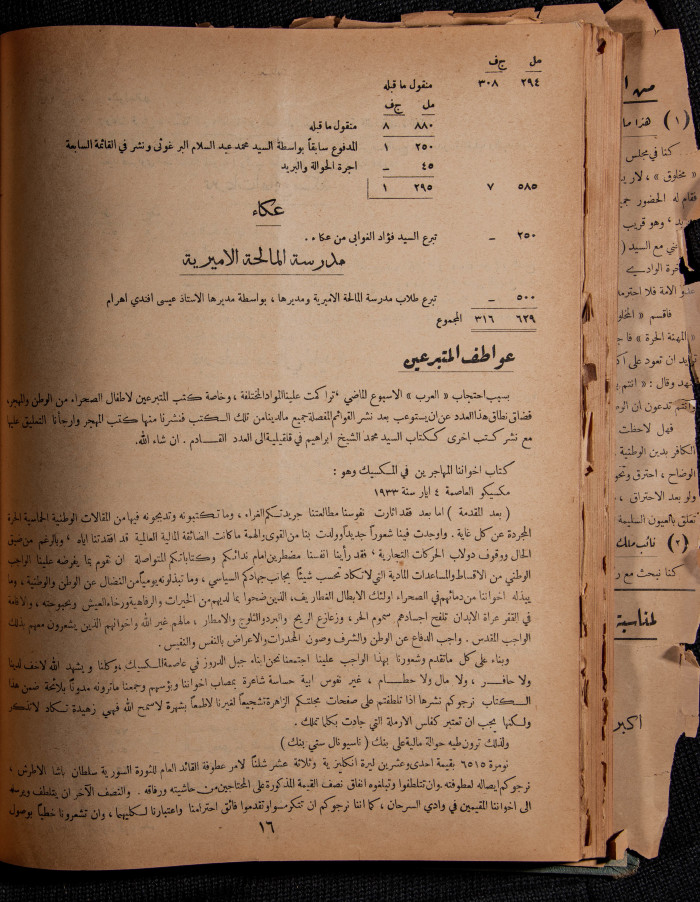 مل ج ف
٢٩٤ ٣٠٨ منقول ما قبله
مل ج ف
٨٨٠ ٨ منقول ما قبله
٢٥٠ ١ المدفوع سابقاً بواسطة السيد محمد عبد السلام البرغوثي ونشر في القائمة السابعة
٤٥ – اجرة الحوالة والبريد
٥٨٥ ٧ ٢٩٥ ١
عكاء
٢٥٠ – تبرع السيد فؤاد من عكاء .
مدرسة المالحة الاميرية
٥٠٠ – تبرع طلاب مدرسة المالحة الاميرية ومديرها ، بواسطة مديرها الاستاذ عيسى افندي اهرام
٦٢٩ ٣١٦ المجموع
عواطف المتبرعين
بسبب احتجاب « العرب » الاسبوع الماضي ، تراكمت علينا المواد المختلفة ، وخاصة كتب المتبرعين لاطفال الصحراء من الوطن والمهجر،
فضاق نطاق هذا العدد عن ان يستوعب بعد نشر القوائم المفصلة جميع مالدينا من تلك الكتب فنشرنا منها كتب المهجر وارجأنا التعليق عليها
مع نشر كتب اخرى ككتاب السيد محمد الشيخ ابراهيم في قلقيلية الى العدد القادم . ان شاء الله.
كتاب اخواننا المهاجرين في المكسيك وهو :
مكسيكو العاصمة ٤ ايار سنة ١٩٣٣
( بعد المقدمة ) اما بعد فقد اثارت نفوسنا مطالعتنا جريدتكم الغراء ، وما تكتبونه وتدبجونه فيها من المقالات الوطنية الحماسية الحرة
المجردة عن كل غاية . واوجدت فينا شعوراً جديداً وولدت بنا من القوى والهمة ماكانت الضائقة المالية العالمية قد افقدتنا اياه ، وبالرغم من ضيق
الحال ووقوف دولاب الحركات التجارية ، فقد رأينا انفسنا مضطرين امام ندائكم وكتاباتكم المتواصلة ان نقوم بما يفرضه علينا الواجب
الوطني من الاقساط والمساعدات المادية التي لاتكاد تحسب شيئاً بجانب جهادكم السياسي ، وما تبذلونه يومياً من النضال عن الوطن والوطنية ، وما
يبذله اخواننا من دمائهم في الصحراء اولئك الابطال الغطاريف، الذين ضحوا بما لديهم من الخيرات والرفاهية ورخاء العيش وبحبوحته ، والاقامة
في القفر عراة الابدان تلفح اجسادهم سموم الحر ، وزعازع الريح والبرد والثلوج والامطار ، مالهم غير الله واخوانهم الذين يشعرون معهم بذلك
الواجب المقدس . واجب الدفاع عن الوطن والشرف وصون المخدرات والاعراض بالنفس والنفيس.
وبناء على كل ماتقدم وشعورنا بهذا الواجب علينا اجتمعنا نحن ابناء جبل الدروز في عاصمة المكسيك ، وكلنا و يشهد الله لاخف لدينا
ولا حافر ، ولا مال ولا حطام ، غير نفوس ابية حساسة شاعرة بمصاب اخواننا وبؤسهم وجمعنا ماترونه مدوناً بلائحة ضمن هذا
الكتاب نرجوكم نشرها اذا تلطفتم على صفحات مجلتكم الزاهرة تشجيعاً لغيرنا لاطمعاً بشهرة لاسمح الله فهي زهيدة تكاد لاتذكر
ولكنها يجب ان تعتبر كفلس الارملة التي جادت بكلما تملك .
ولذلك ترون طيه حوالة مالية على بنك ( ناسيونال ستي بنك )
نومرة ٦٥١٥ بقيمة احدى وعشرين ليرة انكليزية وثلاثة عشر شلناً لامر عطوفة القائد العام للثورة السورية سلطان باشا الاطرش ،
نرجوكم ايصاله لعطوفته . وان تتلطفوا وتبلغوه انفاق نصف القيمة المذكورة على المحتاجين من حاشيته ورفاقه . والنصف الآخر ان يتلطف ويرسله
الى اخواننا المقيمين في وادي السرحان ، كما اننا نرجوكم ان تتكرموا وتقدموا فائق احترامنا واعتبارنا لكليهما ، وان تشعرونا خطياً بوصول
١٦
من ا
( ١ ) هذا ما
كنا في مجلس
« مخلوق » ، لا
فقام له الحضور
وهو قريب
مع السيد (
الامة فلا احترمه
فاقسم « المخلو
« المهنة الحرة »
ان تعود على
وقال : « انتم
تدعون ان
فهل لاحظت
الكافر بدين الوطنية
الوضاح ، احترق
ولو بعد الاحتراق ،
تتعلق بالعيون السليمة
( ٢ ) نائب ملك
كنا نبحث مع
لمناسبة
اكبر